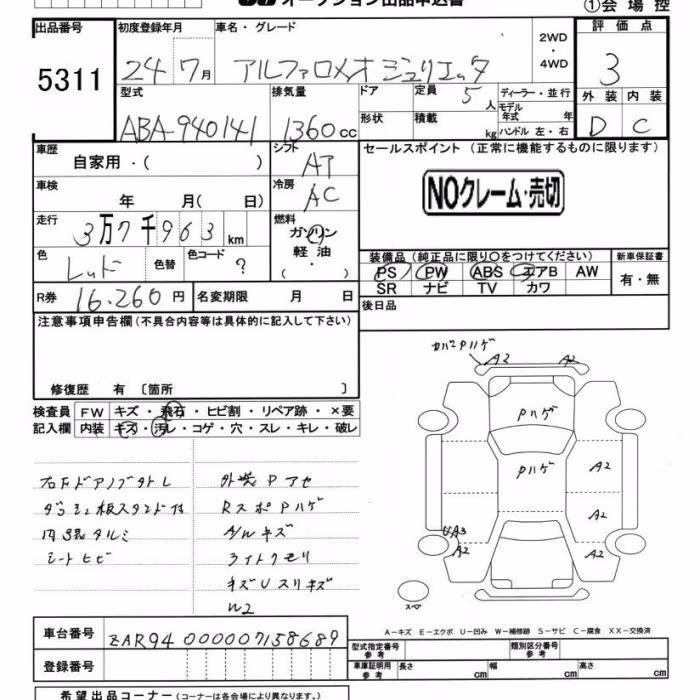 オークション出品申込書
①会場控
出品番号
5311
初度登録年月
24 7月
車名・グレード
アルファロメオ ジュリエッタ
2WD
・
4WD
評価点
3
外装 内装
D C
型式
ABA-940141
排気量
1360cc
ドア
形状
定員 5人
積載 kg
ディーラー・並行
モデル年式 年
ハンドル 左・右
車歴
自家用・( )
シフト
AT
車検
年 月( 日)
冷房
AC
走行
3万7千963km
燃料
ガソリン
軽油
・
色
レッド
色替
色コード
?
R券 16.260円
名変期限 月 日
セールスポイント (正常に機能するものに限ります)
NOクレーム・売切
装備品 (純正品に限り○をつけてください)
新車保証書
PS PW ABS エアB AW
SR ナビ TV カワ
有・無
後日品
注意事項申告欄(不具合内容等は具体的に記入して下さい)
修復歴 有 〔箇所 〕
検査員記入欄
FW キズ・飛石・ヒビ割・リペア跡・×要
内装 キズ・汚レ・コゲ・穴・スレ・キレ・破レ
ダッシュ板スタンド付
内張タルミ
シートヒビ
外装Pアセ
RスポPハゲ
A/Wキズ
ライトクモリ
キズUスリキズ
W2
カバーPハゲ
A2 A2
Pハゲ
Pハゲ
A2
A2
UA3
A2
A2
スペア
A-キズ E-エクボ U-凹み W-補修跡 S-サビ C-腐食 XX-交換済
車台番号
ZAR94000007158689
登録番号
型式指定番号
参考
類別区分番号
参考
車庫証明用
参考
長さ cm
幅 cm
高さ cm
希望出品コーナー (コーナーは各会場により異なります。)